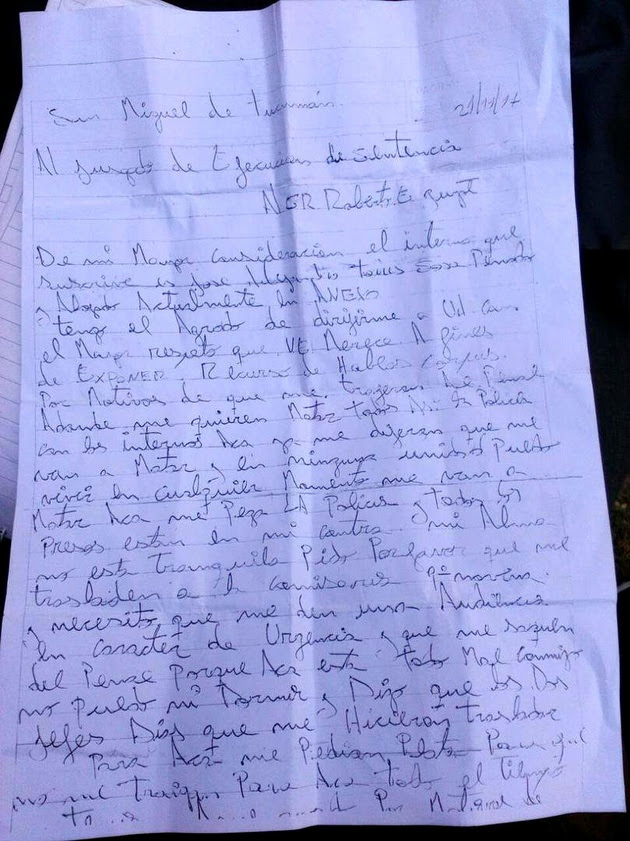 San Miguel de Tucumán. 21/11/17
Al Jusgado de Ejecucion de Sentencia
Roberto E
De mi Mayor consideración el interno que
suscrive es jose Penado
y Alojado Actualmente En ANEXO
tengo el Agrado de dirijirme a Ud con
el Mayor respeto que VE Merece A fines
de EXPONER Recurso de Habeas Corpus.
Por Motivos de que me trajeron Al Penal
Adonde me quieren Matar todos La Policia
con los internos Aca ya me dijeron que me
van a Matar y En ninguna unidad Puedo
vivir En cualquier Momento me van a
Matar Aca me Pega LA Policia y todos los
Presos están En mi contra mi Alma
no está tranquila Pido Porfavor que me
trasladen a la comisaria 9º novena
y necesito que me den una Audiencia
En caracter de Urgencia y que me saquen
del Penal Porque Aca está todo Mal Conmigo
no puedo ni Dormir y Digo que los Dos
Jefes Dias que me Hicieron trasladar
Para Acá me Pedian Plata Para que
no me traigan Para Aca todo el tiempo
Por de